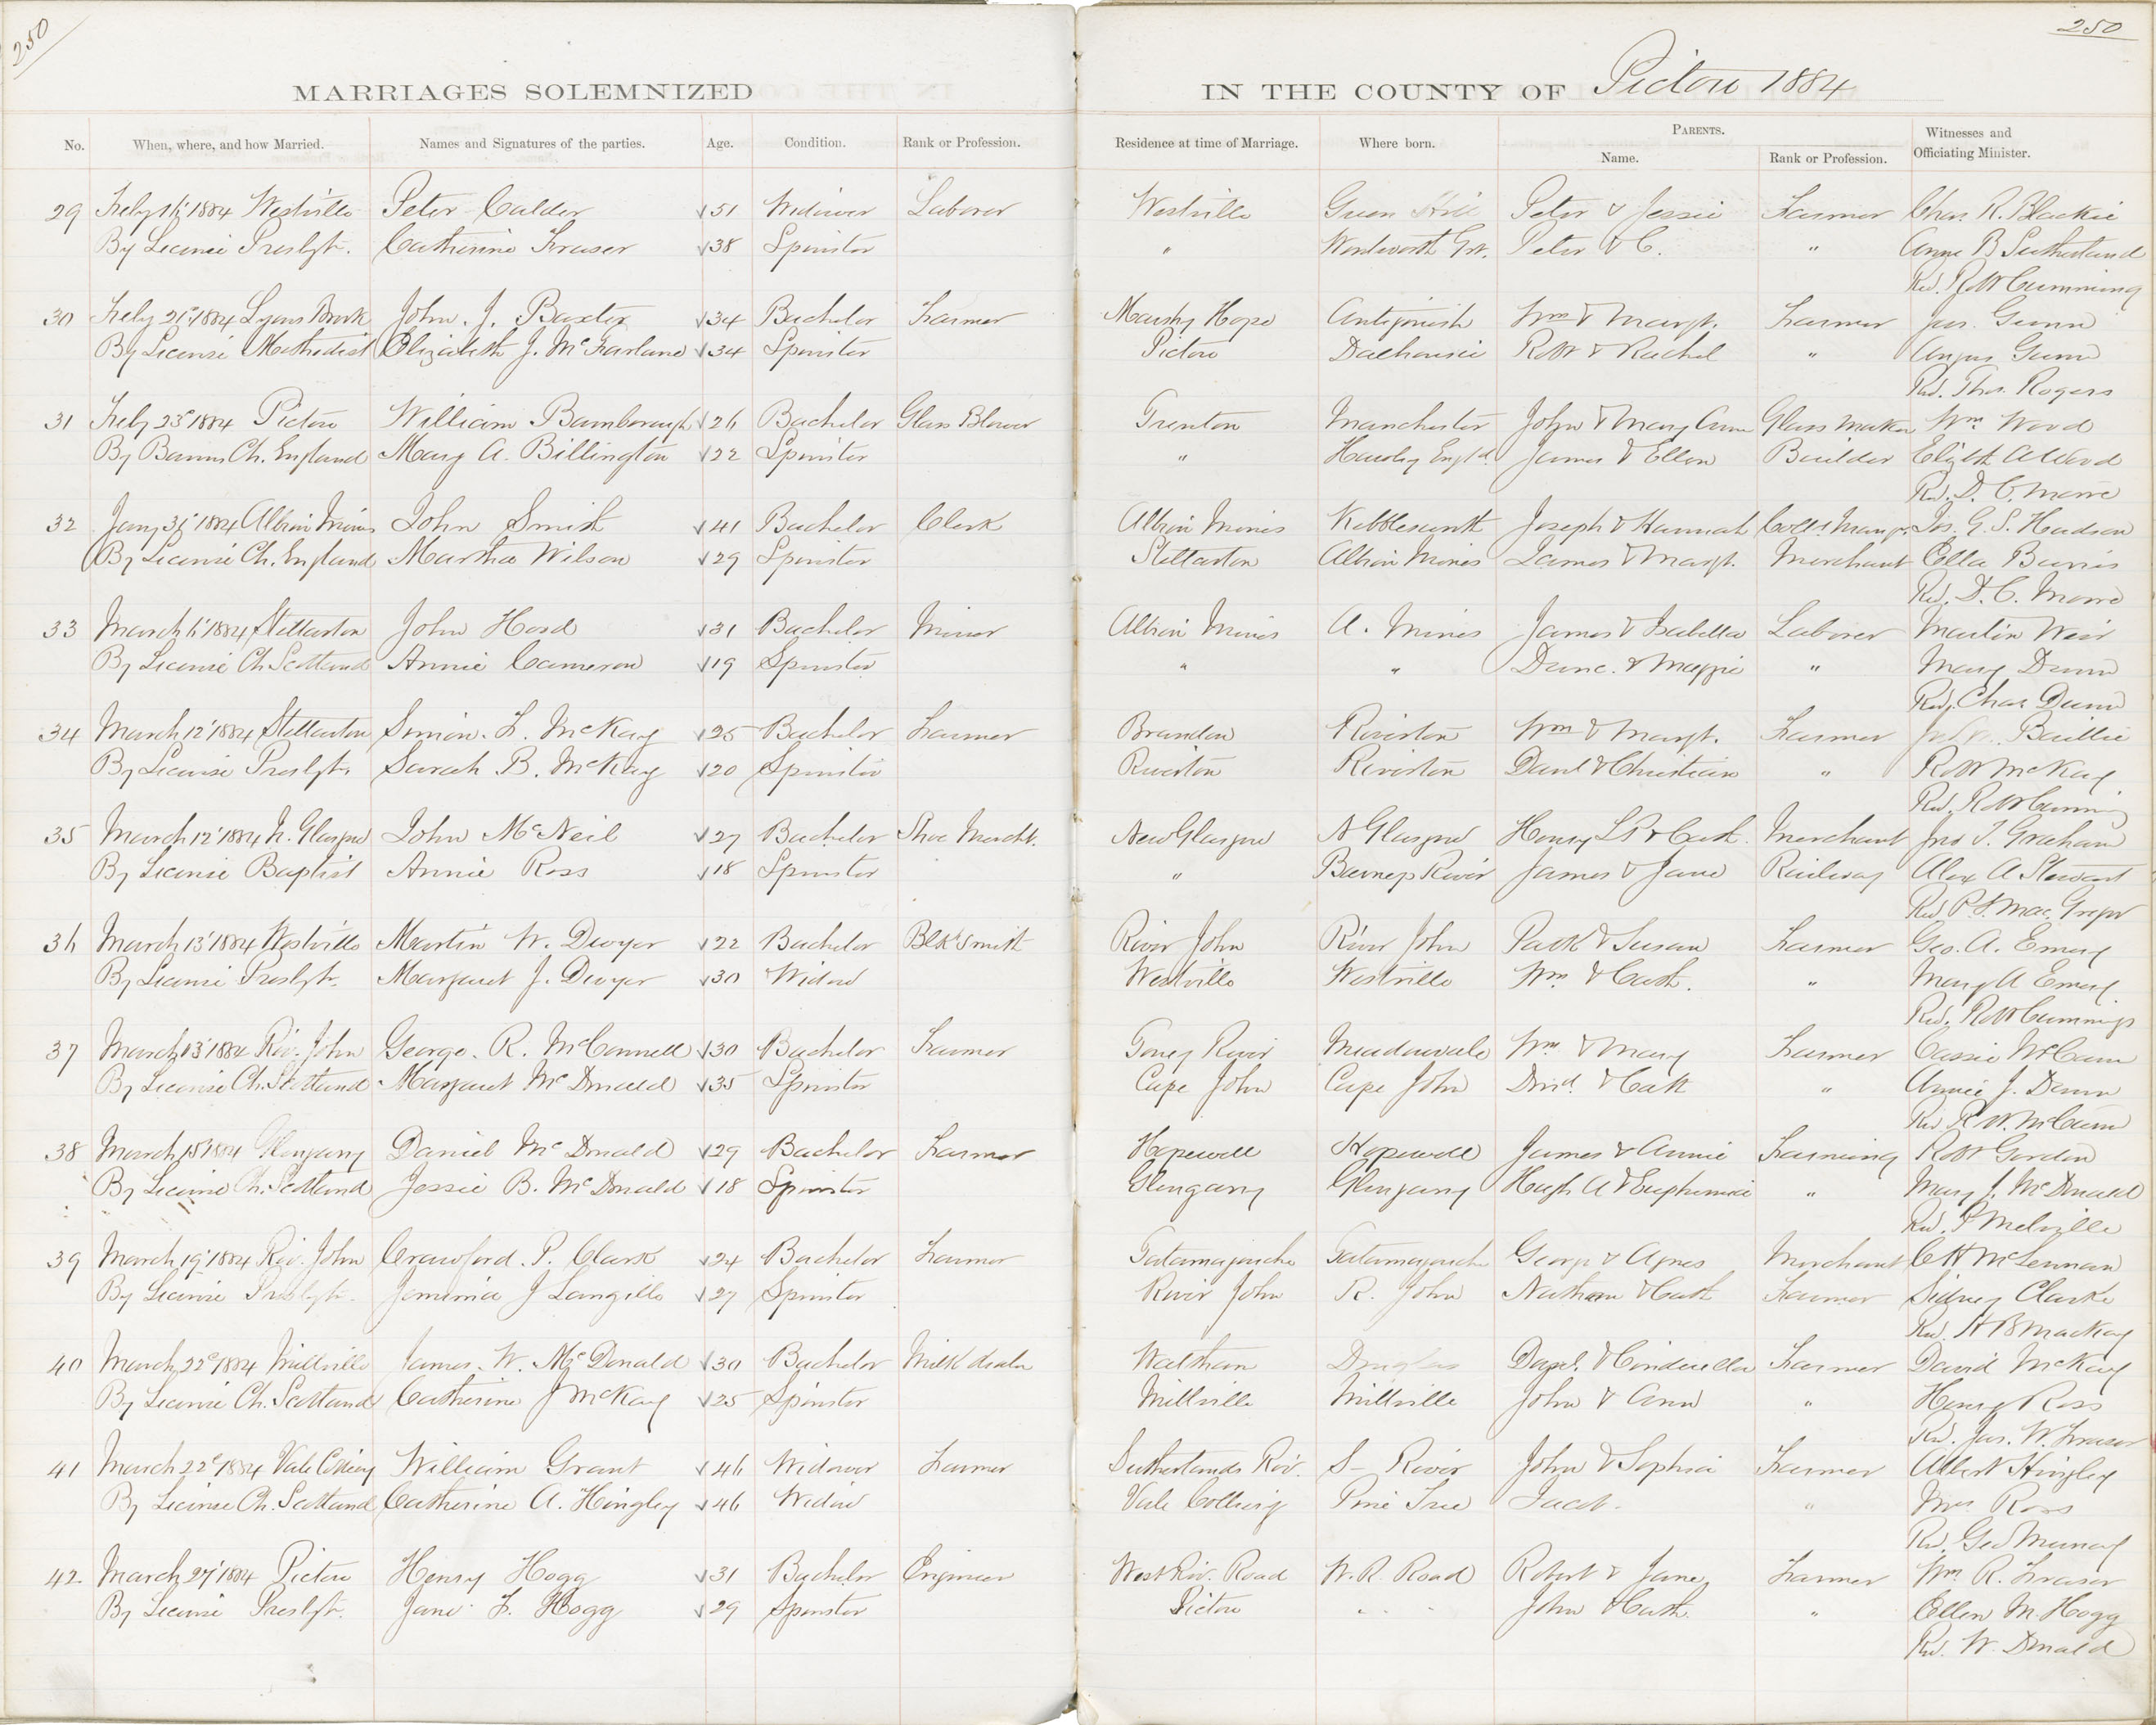 250
250
MARRIAGES SOLEMNIZED IN THE COUNTY OF Pictou 1884
No. When, where, and how Married. Names and Signatures of the parties. Age. Condition. Rank or Profession. Residence at time of Marriage. Where born. PARENTS. Name. Rank or Profession. Witnesses and Officiating Minister.
29 Feby 1884 Westville Peter Calder 51 Widower Laborer Westville Green Hill Peter & Jessie Farmer Chas. R. Blackie
By License Presbyt. Catherine Fraser 38 Spinster " Wentworth Grt. Peter & C. " Anne B Sutherland
Rev. Robt Cumming
30 Feby 21st 1884 Lyons Brook John. J. Baxter 34 Bachelor Farmer Marshy Hope Antigonish Wm & Margt. Farmer Jas. Gunn
By License Methodist Elizabeth J. McFarlane 34 Spinster Pictou Dalhousie Robt & Rachel " Angus Gunn
Rev. Thos. Rogers
31 Feby 23d 1884 Pictou William Bamborough 26 Bachelor Glass Blower Trenton Manchester John & Mary Ann Glass Maker Wm Wood
By Banns Ch. England Mary A. Billington 22 Spinster " Engld. James & Ellen Builder Elizbth A Wood
Rev. D. C. Moore
32 Jany 31st 1884 Albion Mines John Smith 41 Bachelor Clerk Albion Mines Kibblesworth Joseph & Hannah Colly. Mangr. Jos. G. S. Hudson
By License Ch. England Martha Wilson 29 Spinster Stellarton Albion Mines James & Margt. Merchant Ella Burris
Rev. D. C. Moore
33 March 6' 1884 Stellarton John Hood 31 Bachelor Miner Albion Mines A. Mines James & Isabella Laborer Martin Weir
By License Ch. Scotland Annie Cameron 19 Spinster " " Dunc. & Maggie " Mary Dunn
Rev. Chas Dunn
34 March 12' 1884 Stellarton Simon. F. McKay 25 Bachelor Farmer Brandon Riverton Wm & Margt. Farmer Baillie
By License Presbyt. Sarah B. McKay 20 Spinster Riverton Riverton Danl & Christian " Robt McKay
Rev. Robt Cumming
35 March 12' 1884 N. Glasgow John McNeil 27 Bachelor Shoe Mercht. New Glasgow N Glasgow Henry & Cath. Merchant Jno T. Graham
By License Baptist Annie Ross 18 Spinster " Barneys River James & Jane Railway Alex A Stewart
Rev P. S. MacGregor
36 March 13' 1884 Westville Martin W. Dwyer 22 Bachelor Blksmith River John River John Patk & Susan Farmer Geo. A. Emery
By License Presbyt. Margaret J. Dwyer 30 Widow Westville Westville Wm. & Cath. " Mary A Emery
Rev. Robt Cummings
37 March 13' 1884 Riv. John George. R. McConnell 30 Bachelor Farmer Toney River Meadowvale Wm & Mary Farmer Cassie McCunn
By License Ch. Scotland Margaret McDonald 35 Spinster Cape John Cape John Dond. & Cath " Annie J. Dunn
Rev R. W. McCunn
38 March 15' 1884 Glengarry Daniel McDonald 29 Bachelor Farmer Hopewell Hopewell James & Annie Farming Robt Gordon
By License Ch. Scotland Jessie B. McDonald 18 Spinster Glengarry Glengarry Hugh A & Euphemia " Mary J. McDonald
Rev. P Melville
39 March 19' 1884 Riv. John Crawford. P. Clark 24 Bachelor Farmer Tatamagouche Tatamagouche George & Agnes Merchant C H McLennan
By License Presbyt. Jemimia J Langille 27 Spinster River John R. John Nathan & Cath Farmer Sidney Clarke
Rev. H B Mackay
40 March 22d 1884 Millville James. W. McDonald 30 Bachelor Milk dealer Waltham Douglas Danl. & Cinderella Farmer David McKay
By License Ch. Scotland Catherine J McKay 25 Spinster Millville Millville John & Ann " Henry Ross
Rev. Jas. W. Fraser
41 March 22d 1884 Vale Colliery William Grant 46 Widower Farmer Sutherlands Riv. S- River John & Sophia Farmer Albert Hingley
By License Ch. Scotland Catherine A. Hingley 46 Widow Vale Colliery Pine Tree Jacob. " Mrs Ross
Rev. Geo Murray
42 March 27' 1884 Pictou Henry Hogg 31 Bachelor Engineer West Riv. Road W. R. Road Robert & Jane Farmer Wm R. Fraser
By License Presbyt. Jane F. Hogg 29 Spinster Pictou " " " John & Cath. " Ellen M. Hogg
Rev. W. Donald